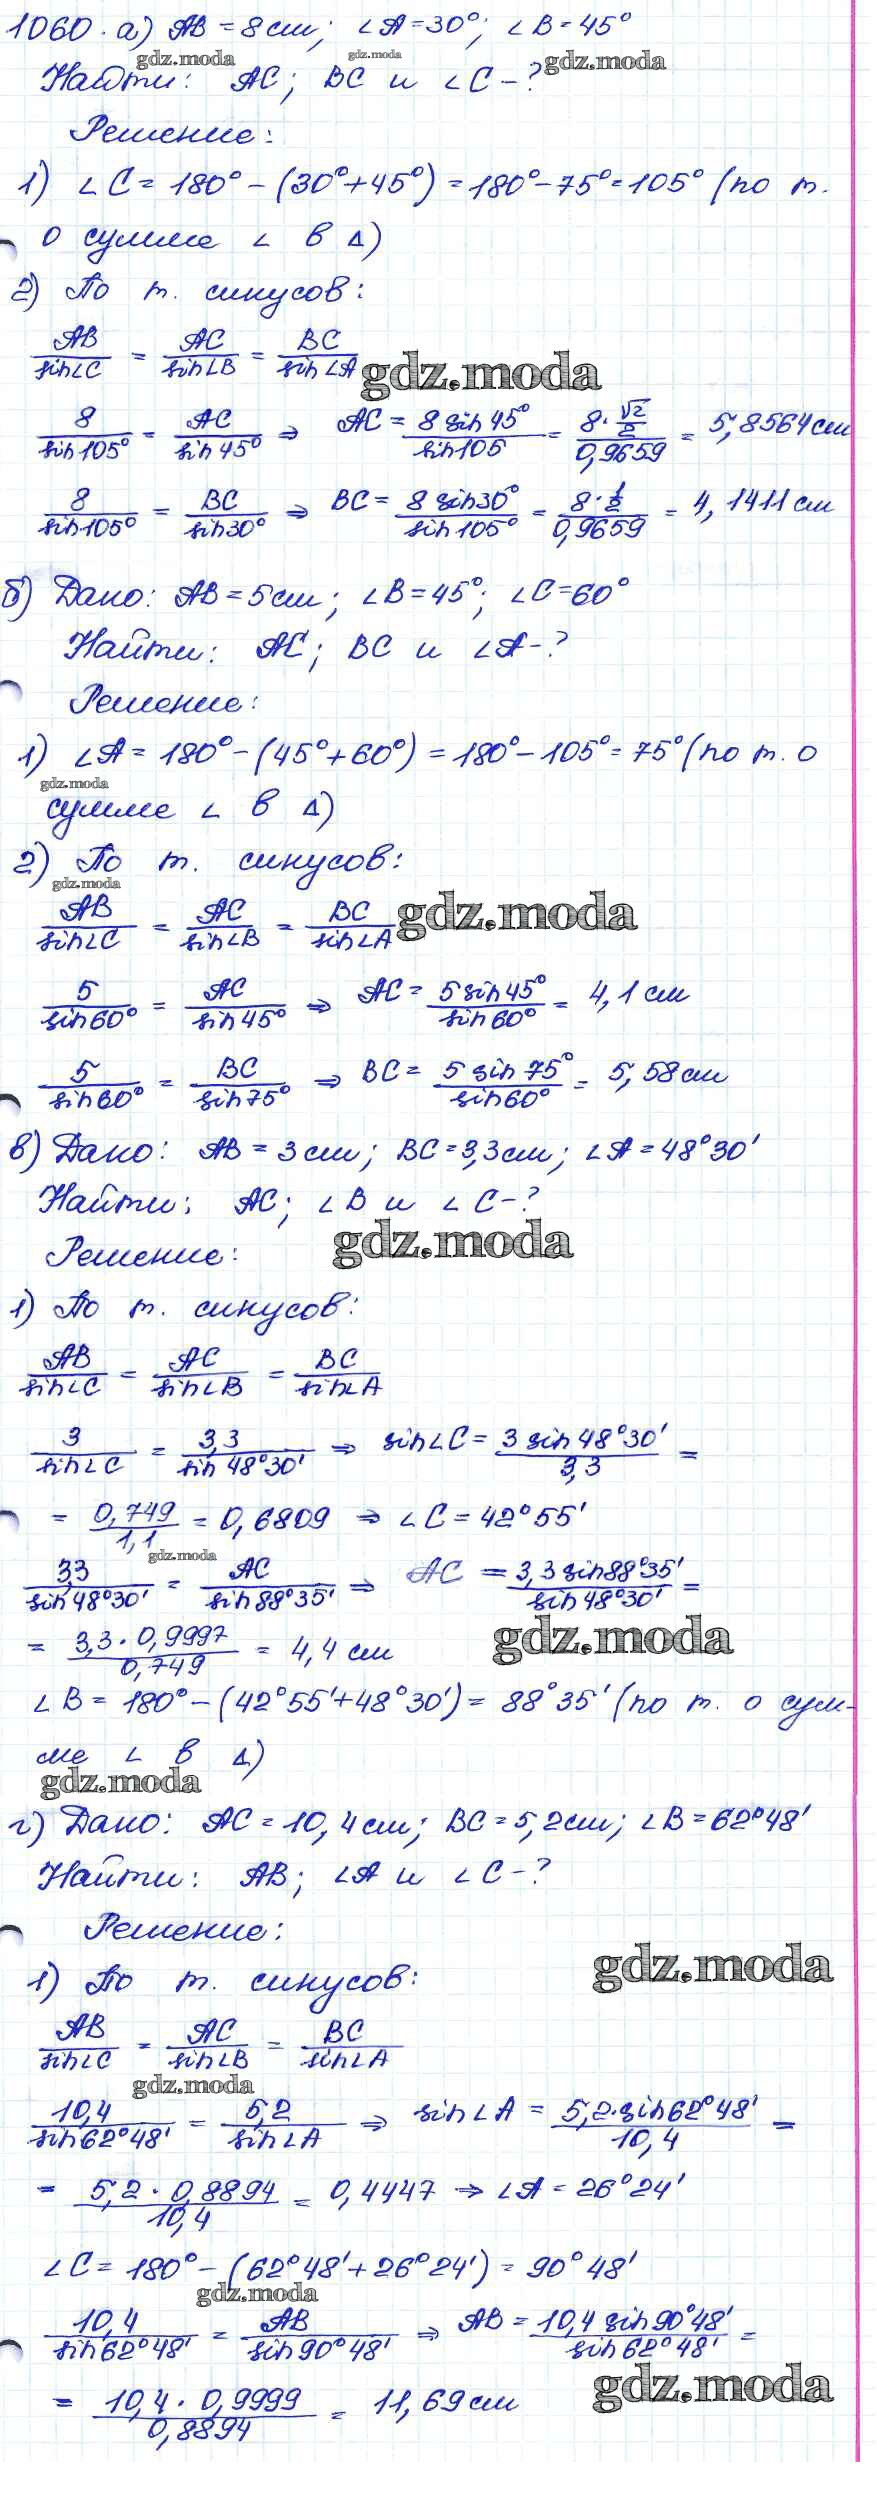 1060. а) AB = 8 см; ∠A = 30°; ∠B = 45°
gdz.moda gdz.moda gdz.moda
Найти: AC; BC и ∠C - ?
Решение:
1) ∠C = 180° - (30° + 45°) = 180° - 75° = 105° (по т.
о сумме ∠ в Δ)
2) По т. синусов:
AB/sin∠C = AC/sin∠B = BC/sin∠A
gdz.moda
8/sin105° = AC/sin45° ⇒ AC = 8 sin45°/sin105 = 8·(√2/2)/0,9659 = 5,8564 см
8/sin105° = BC/sin30° ⇒ BC = 8 sin30°/sin105° = 8·(1/2)/0,9659 = 4,1411 см
б) Дано: AB = 5 см; ∠B = 45°; ∠C = 60°
Найти: AC; BC и ∠A - ?
Решение:
1) ∠A = 180° - (45° + 60°) = 180° - 105° = 75° (по т. о
gdz.moda
сумме ∠ в Δ)
2) По т. синусов:
gdz.moda
AB/sin∠C = AC/sin∠B = BC/sin∠A
gdz.moda
5/sin60° = AC/sin45° ⇒ AC = 5 sin45°/sin60° = 4,1 см
5/sin60° = BC/sin75° ⇒ BC = 5 sin75°/sin60° = 5,58 см
в) Дано: AB = 3 см; BC = 3,3 см; ∠A = 48°30'
Найти: AC; ∠B и ∠C - ?
gdz.moda
Решение:
1) По т. синусов:
AB/sin∠C = AC/sin∠B = BC/sin∠A
3/sin∠C = 3,3/sin48°30' ⇒ sin∠C = 3 sin48°30'/3,3 =
= 0,749/1,1 = 0,6809 ⇒ ∠C = 42°55'
gdz.moda
3,3/sin48°30' = AC/sin88°35' ⇒ AC = 3,3 sin88°35'/sin48°30' =
= 3,3 · 0,9997/0,749 = 4,4 см
gdz.moda
∠B = 180° - (42°55' + 48°30') = 88°35' (по т. о сум-
ме ∠ в Δ)
gdz.moda
г) Дано: AC = 10,4 см; BC = 5,2 см; ∠B = 62°48'
Найти: AB; ∠A и ∠C - ?
Решение:
gdz.moda
1) По т. синусов:
AB/sin∠C = AC/sin∠B = BC/sin∠A
gdz.moda
10,4/sin62°48' = 5,2/sin∠A ⇒ sin∠A = 5,2·sin62°48'/10,4 =
= 5,2 · 0,8894/10,4 = 0,4447 ⇒ ∠A = 26°24'
∠C = 180° - (62°48' + 26°24') = 90°48'
gdz.moda
10,4/sin62°48' = AB/sin90°48' ⇒ AB = 10,4 sin90°48'/sin62°48' =
gdz.moda
= 10,4 · 0,9999/0,8894 = 11,69 см